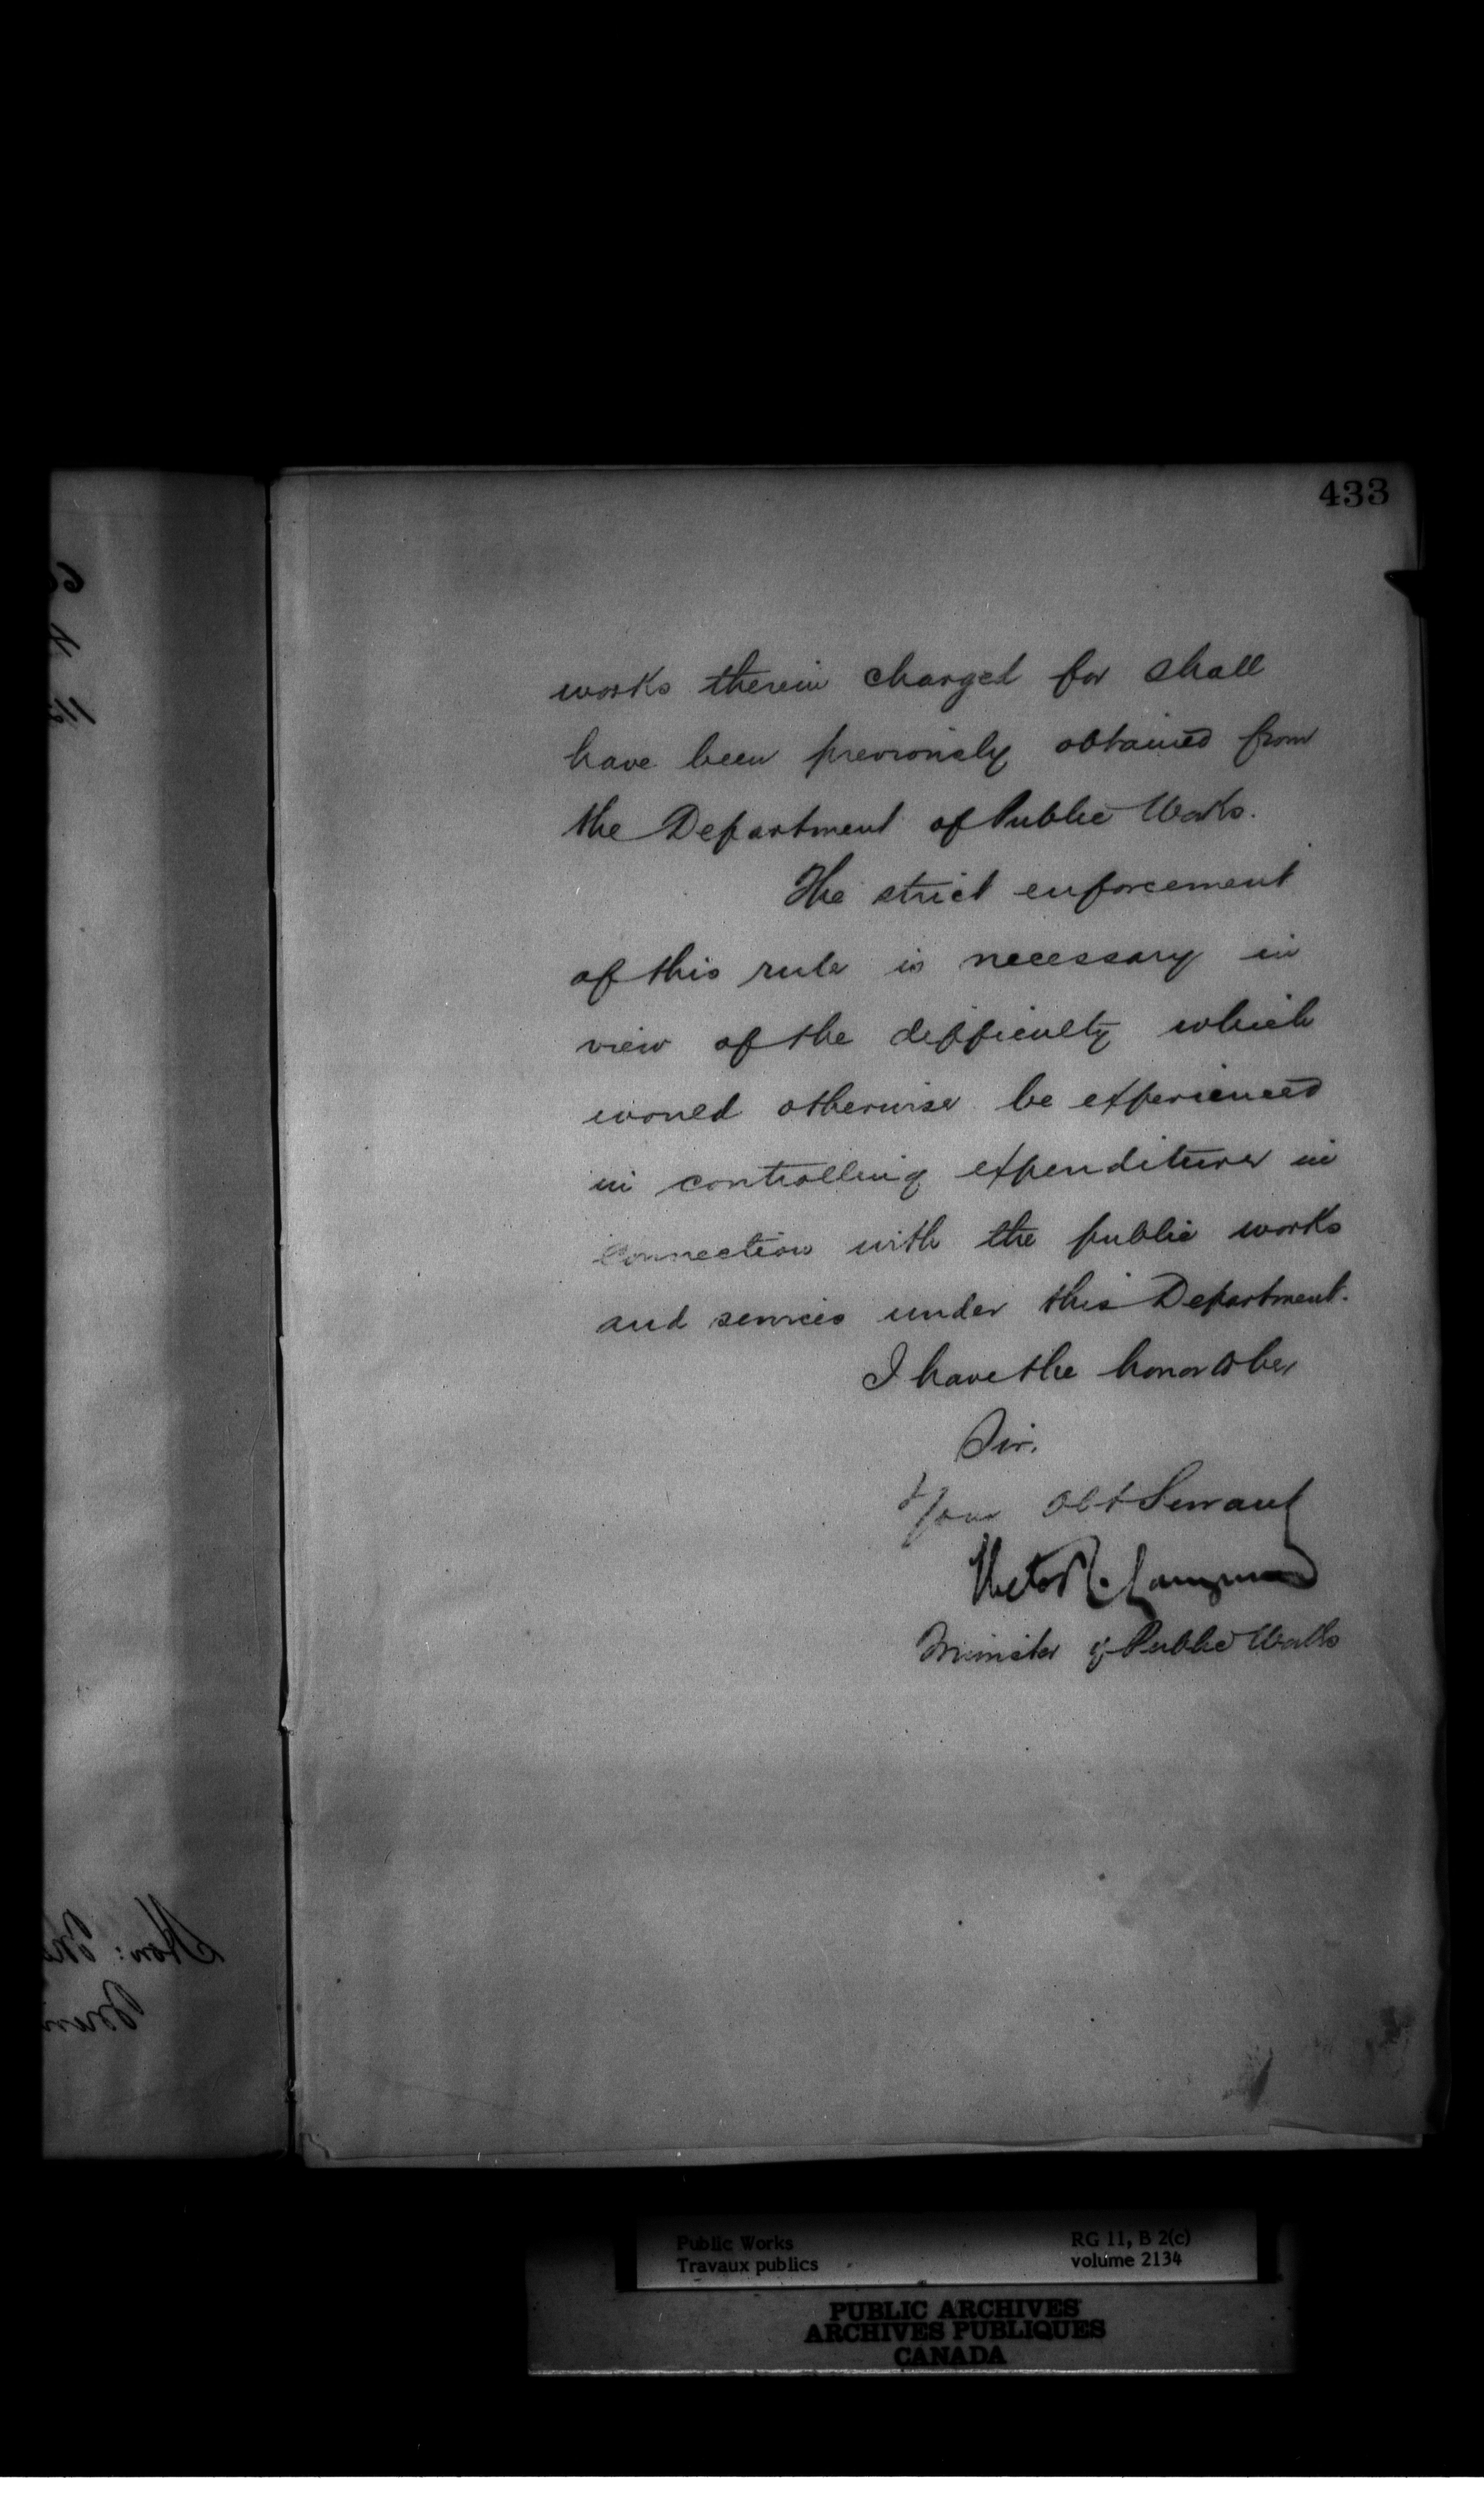 433
works therein charged for shall
have been previously obtained from
the Department of Public Works.
The strict enforcement
of this rule is necessary in
view of the difficulty which
would otherwise be experienced
in controlling expenditures in
connection with the public works
and services under this Department.
I have the honor to be,
Sir,
Your Obt Servant
Hector L. Langevin
Minister of Public Works
Hon:
Public Works
Travaux publics
RG 11, B 2(c)
volume 2134
PUBLIC ARCHIVES
ARCHIVES PUBLIQUES
CANADA